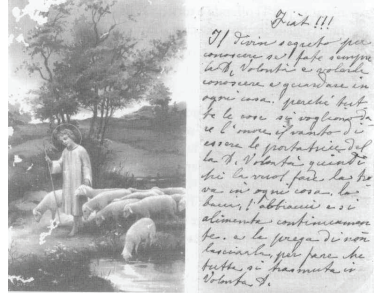 Fiat !!!
Il divin segreto per
conoscere se fate sempre
la D. Volontà e volerla
conoscere e guardare in
ogni cosa. perché tut
te le cose si vogliono da
re l'onore, il vanto di
essere la portatrice del
la D. Volontà quindi
chi la vuol fare la tro
va in ogni cosa la
bacia, l'abbraccia e si
alimenta continuamen
te. e la prega di non
lasciarla per fare che
tutta si trasmuta in
Volontà D.